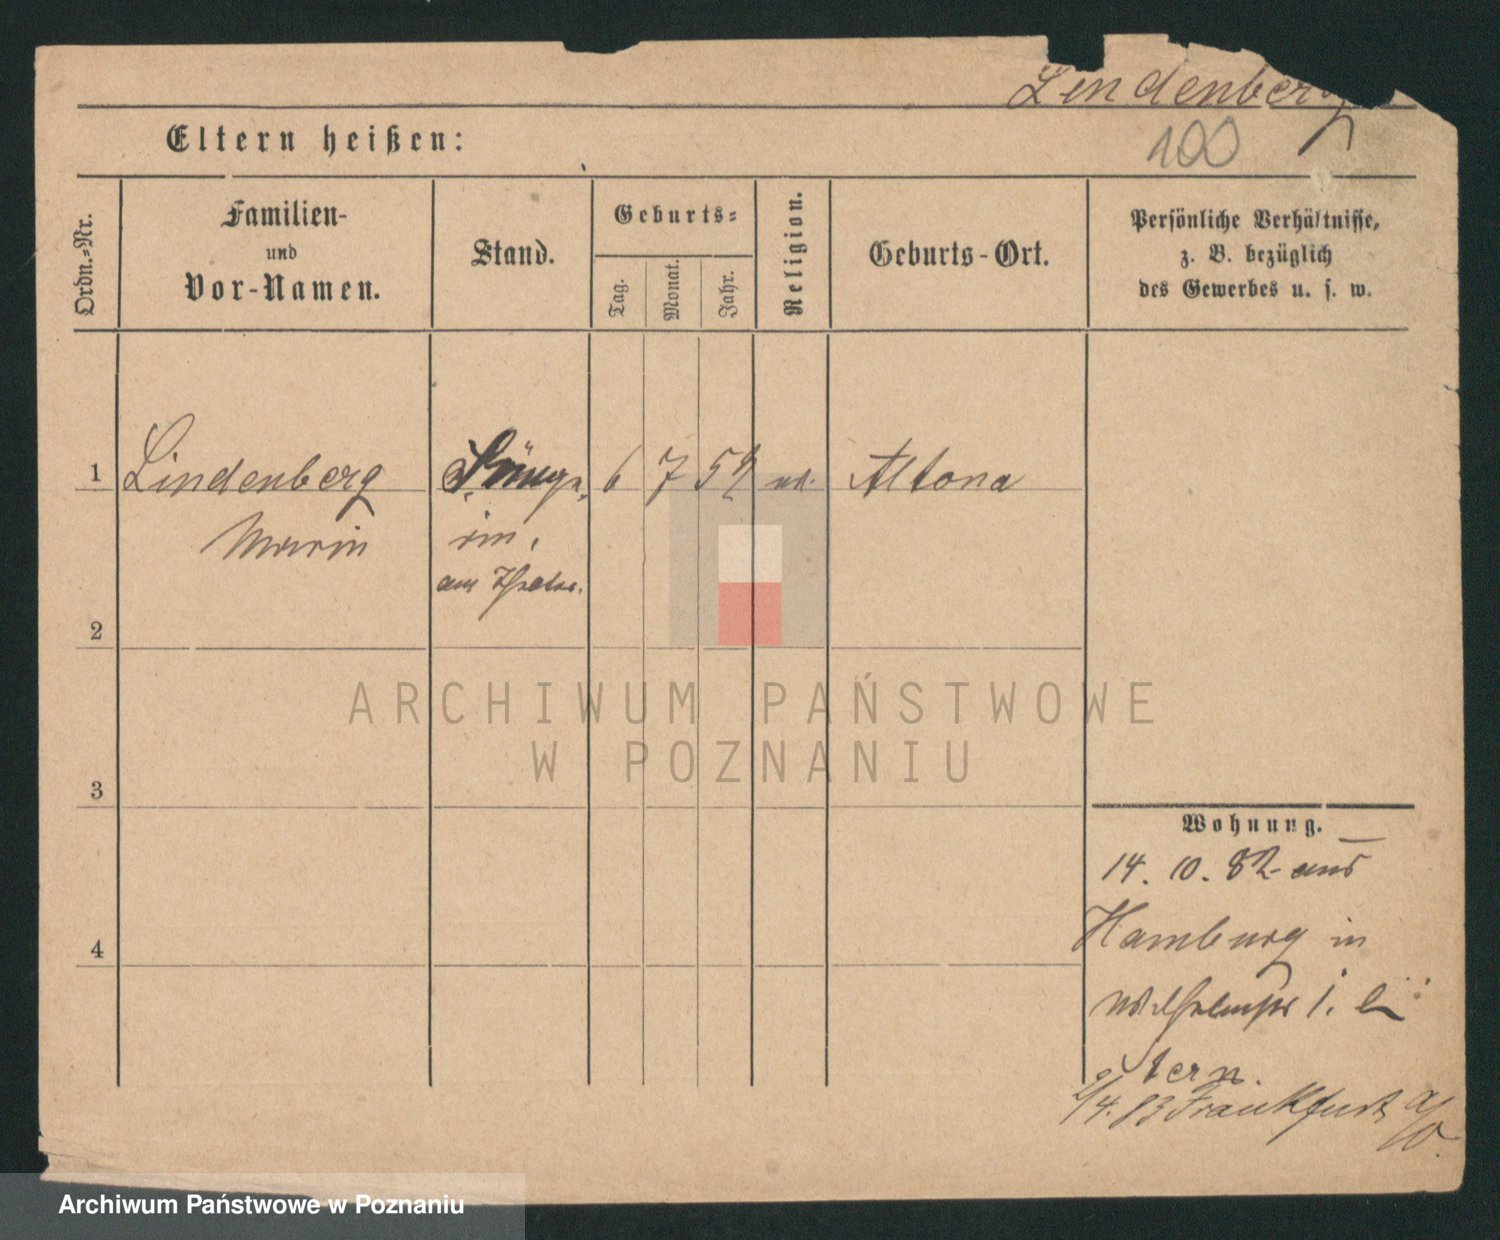 Lindenberg
100
Eltern heißen:
Ordn.-Nr.
Familien-
und
Vor-Namen.
Stand.
Geburts-
Tag.
Monat.
Jahr.
Religion.
Geburts-Ort.
Persönliche Verhältnisse,
z. B. bezüglich
des Gewerbes u. s. w.
1 Lindenberg Sänge- 6 7 52 Altona
Marie rin,
am Theater.
2
3
4
Wohnung.
14. 10. 82 aus
Hamburg in
Wilhelmstr 1.
tern.
/4. 83 Frankfurt a/O.
ARCHIWUM PAŃSTWOWE
W POZNANIU
Archiwum Państwowe w Poznaniu